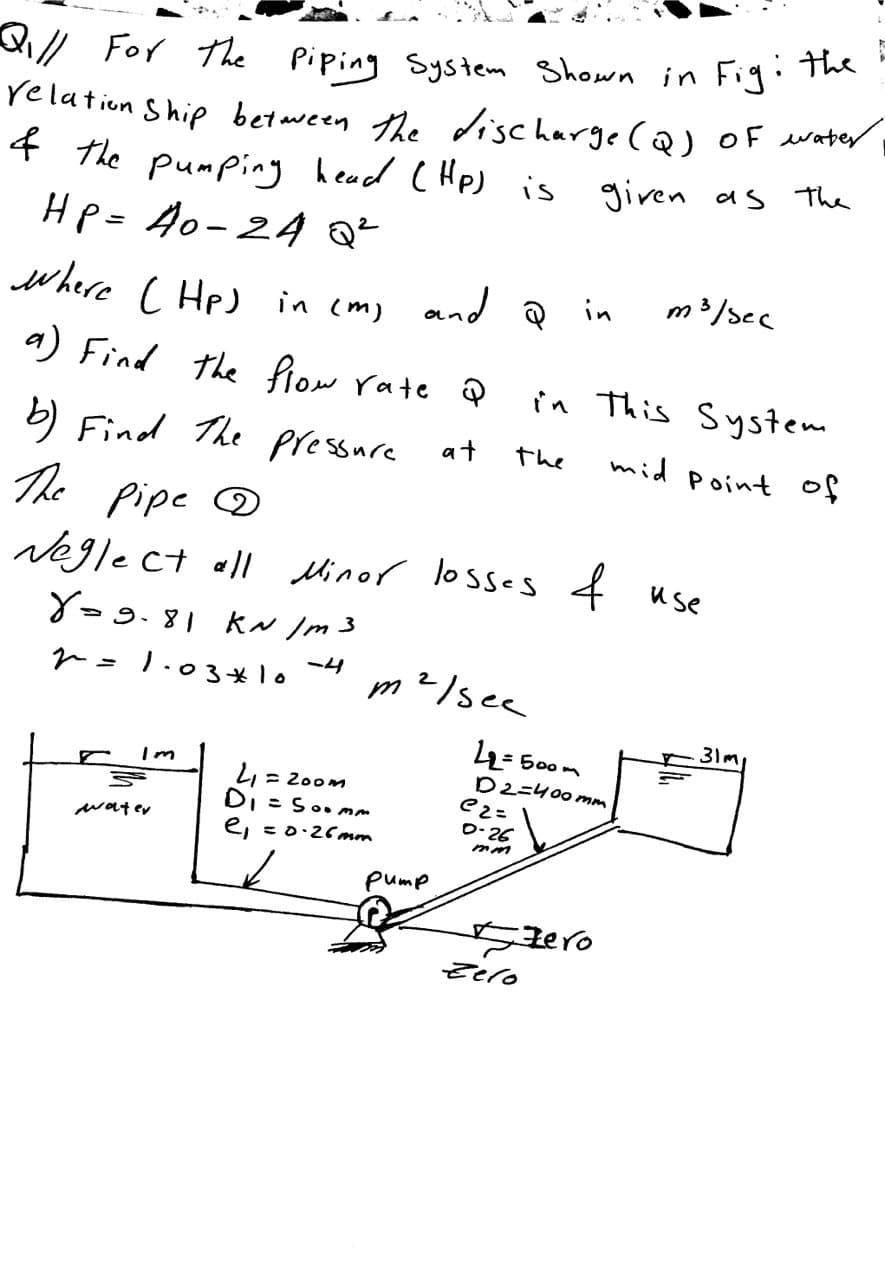 Q1// For The Piping System Shown in Fig: the
relation Ship between The discharge (Q) OF water
& the Pumping head (HP) is given as The
HP = 40-24 Q²
where (HP) in (m) and Q in m³/sec
a) Find The flow rate Q in This System
b) Find The Pressure at the mid Point of
The Pipe ②
Neglect all Minor losses & use
γ = 9.81 KN/m3
ν = 1.03*10 -4 m²/sec
1m
water
L1 = 200m
D1 = 500mm
e1 = 0.26mm
Pump
L2 = 500m
D2=400mm
e2=
0.26
mm
31m
Zero
Zero